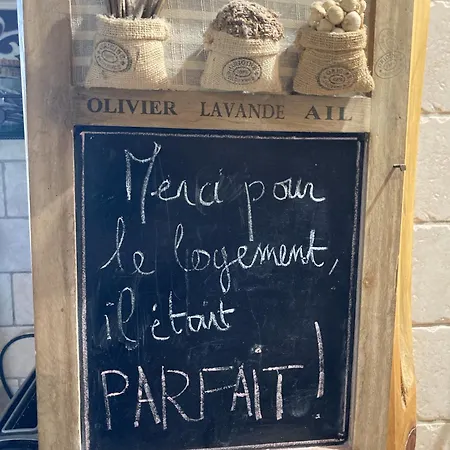 OLIVIER LAVANDE AIL
Merci pour
le logement,
il était
PARFAIT!